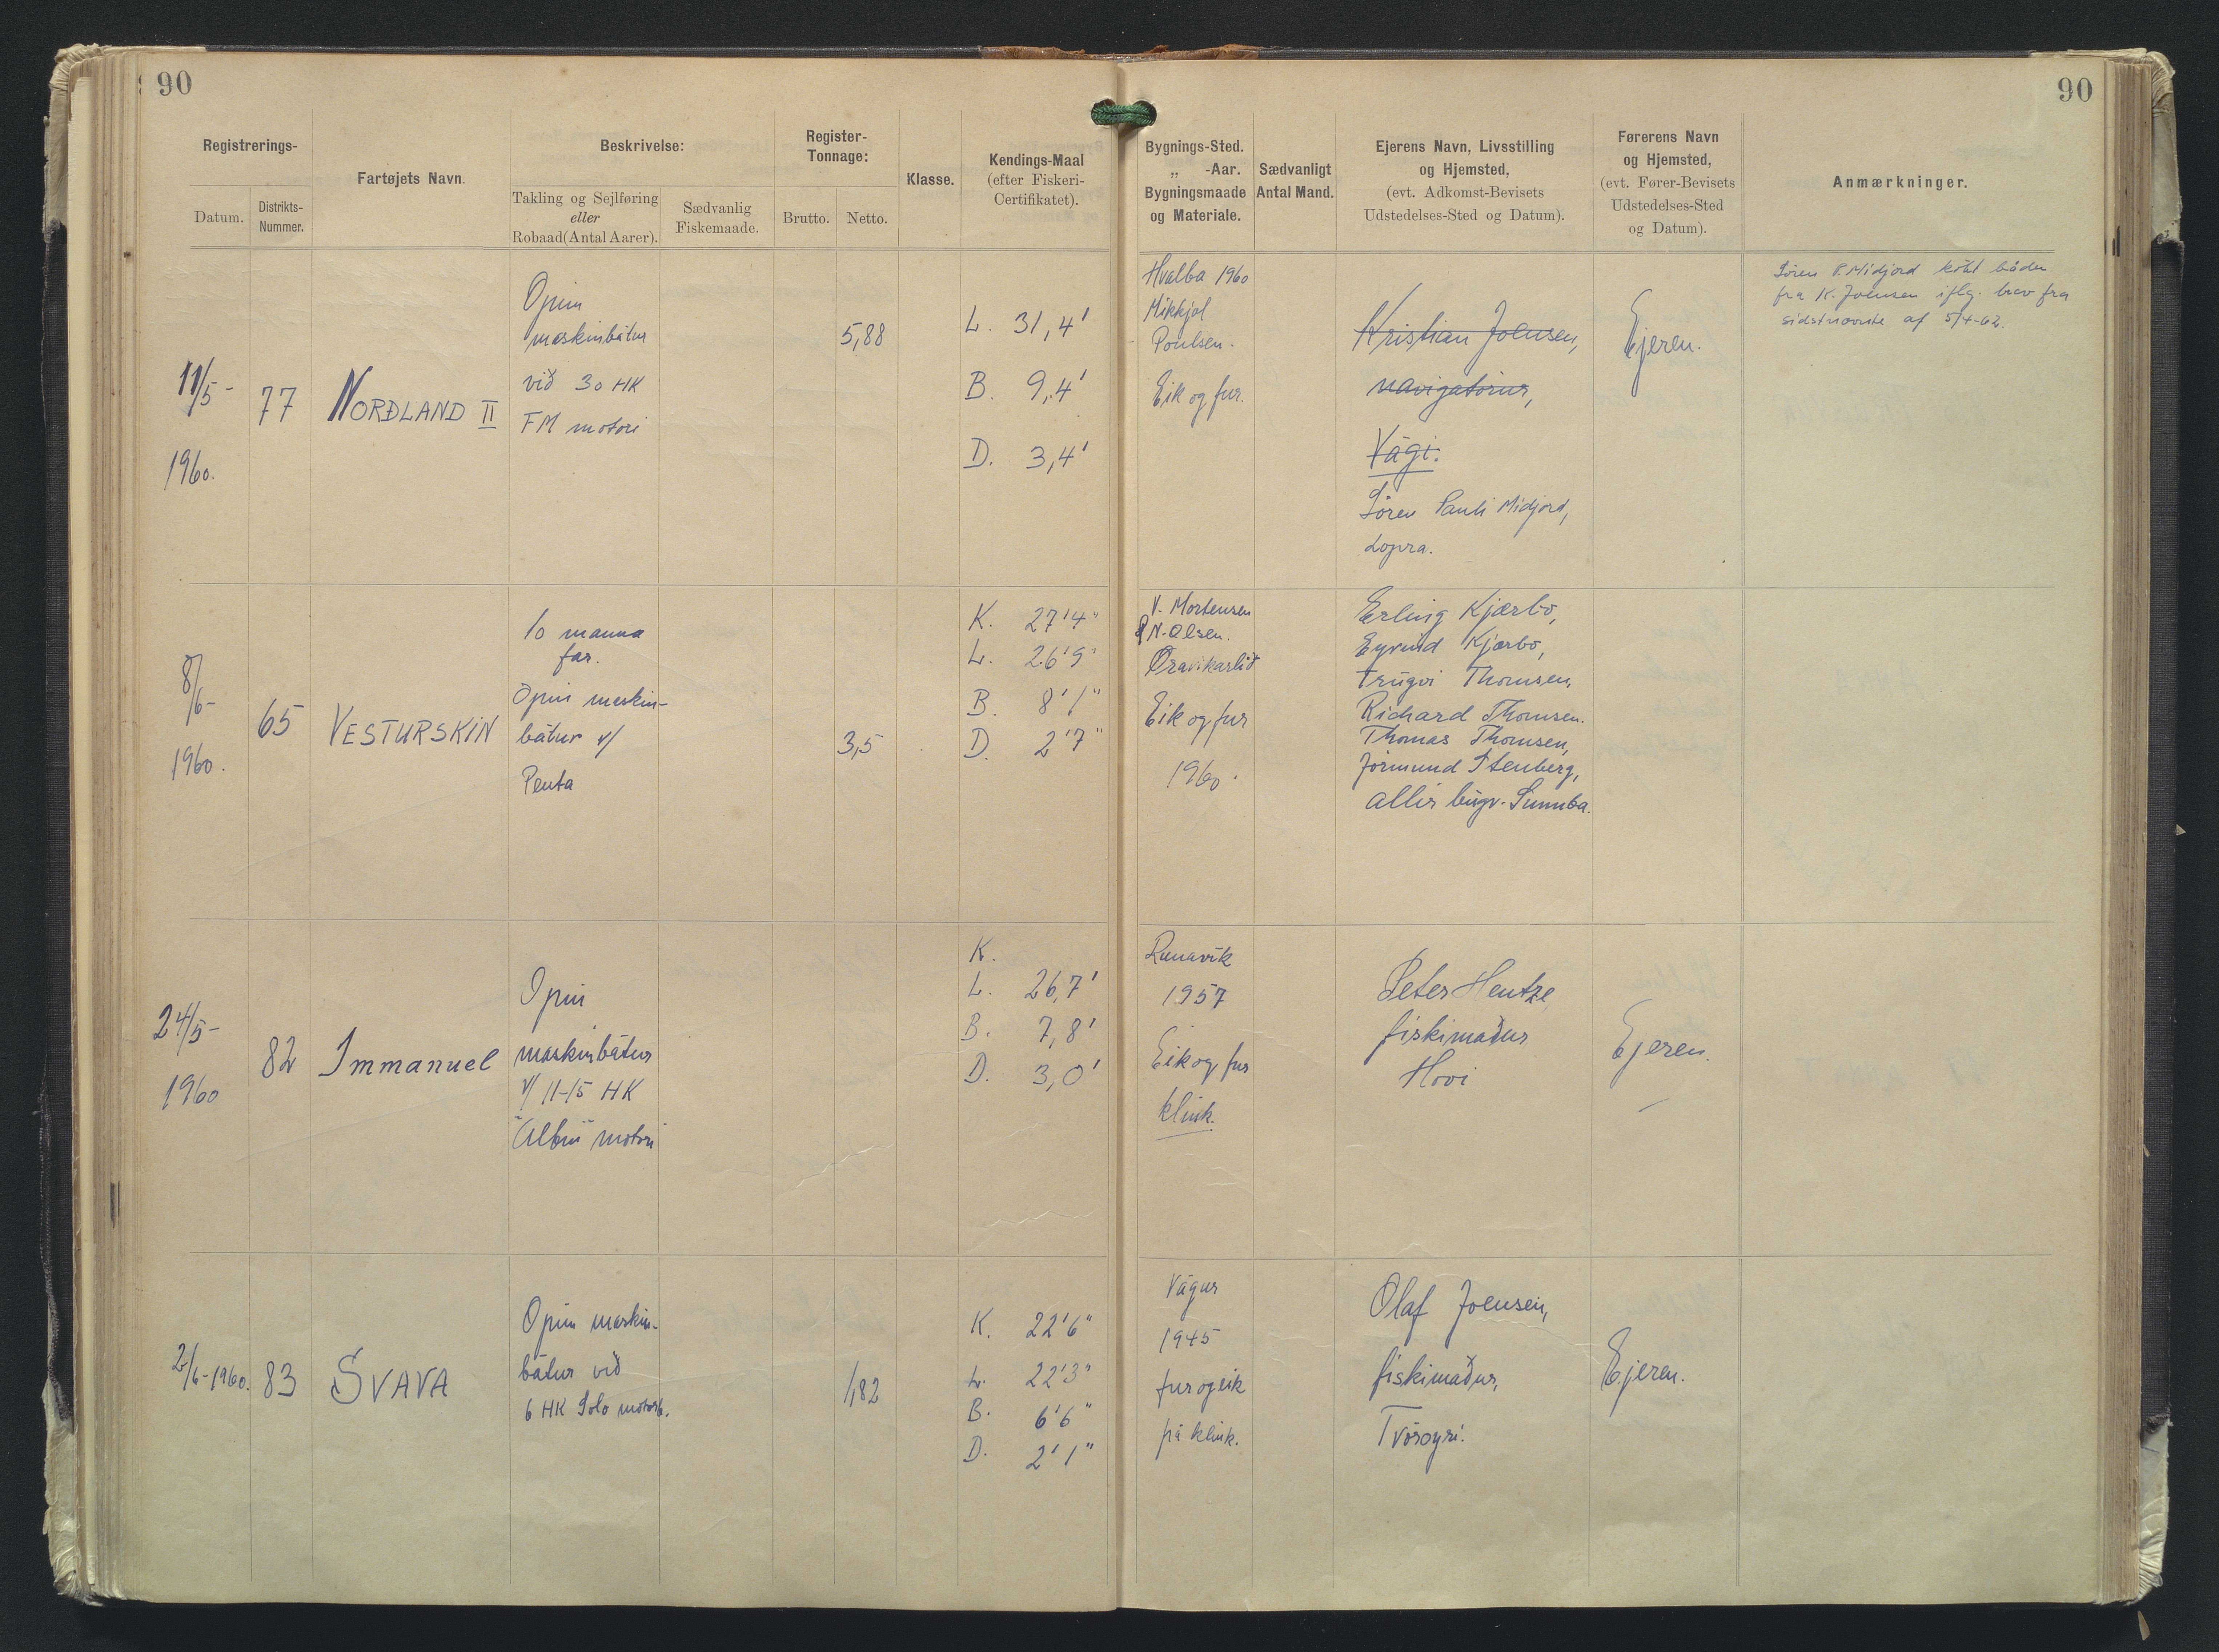 90
90
Registrerings-
Datum.
Distrikts-
Nummer.
Fartøjets Navn.
Beskrivelse:
Takling og Sejlføring
eller
Robaad(Antal Aarer).
Sædvanlig
Fiskemaade.
Register-
Tonnage:
Brutto.
Netto.
Klasse.
Kendings-Maal
(efter Fiskeri-
Certifikatet).
Bygnings-Sted.
„ -Aar.
Bygningsmaade
og Materiale.
Sædvanligt
Antal Mand.
Ejerens Navn, Livsstilling
og Hjemsted,
(evt. Adkomst-Bevisets
Udstedelses-Sted og Datum).
Førerens Navn
og Hjemsted,
(evt. Fører-Bevisets
Udstedelses-Sted
og Datum).
Anmærkninger.
11/5-
1960.
77
NORÐLAND II
Opin
maskinbátur
við 30 HK
FM motori
5,88
L. 31,4'
B. 9,4'
D. 3,4'
Hvalba 1960
Mikkjal
Poulsen.
Eik og fur.
Kristian Joensen,
navigatørur,
Vági.
Sören Pauli Midjord,
Lopra.
Ejeren.
Sören P. Midjord købt båden
fra K. Joensen iflg. brev fra
sidstnævnte af 5/4-62.
8/6-
1960.
65
VESTURSKIN
10 manna
far.
Opin maskin-
bátur v/
Penta
3,5
K. 27'4"
L. 26'9"
B. 8'1"
D. 2'7"
V. Mortensen
& N. Olsen.
Øravíkarlíð
Eik og fur
1960.
Erling Kjærbo,
Eyvind Kjærbo,
Trúgvi Thomsen,
Richard Thomsen.
Thomas Thomsen,
Jörmund Stenberg,
allir búgv. Sumba.
24/5-
1960
82
Immanuel
Opin
maskinbátur
v/ 11-15 HK
"Albin" motori
K.
L. 26,7'
B. 7,8'
D. 3,0'
Runavík
1957
Eik og fur
klink.
Peter Hentze
fiskimaður
Hovi
Ejeren.
2/6-1960.
83
SVAVA
Opin maskin-
bátur við
6 HK Solo motor.
1,82
K. 22'6"
L. 22'3"
B. 6'6"
D. 2'1"
Vágur
1945
fur og eik
på klink.
Olaf Joensen,
fiskimaður,
Tvøroyri.
Ejeren.